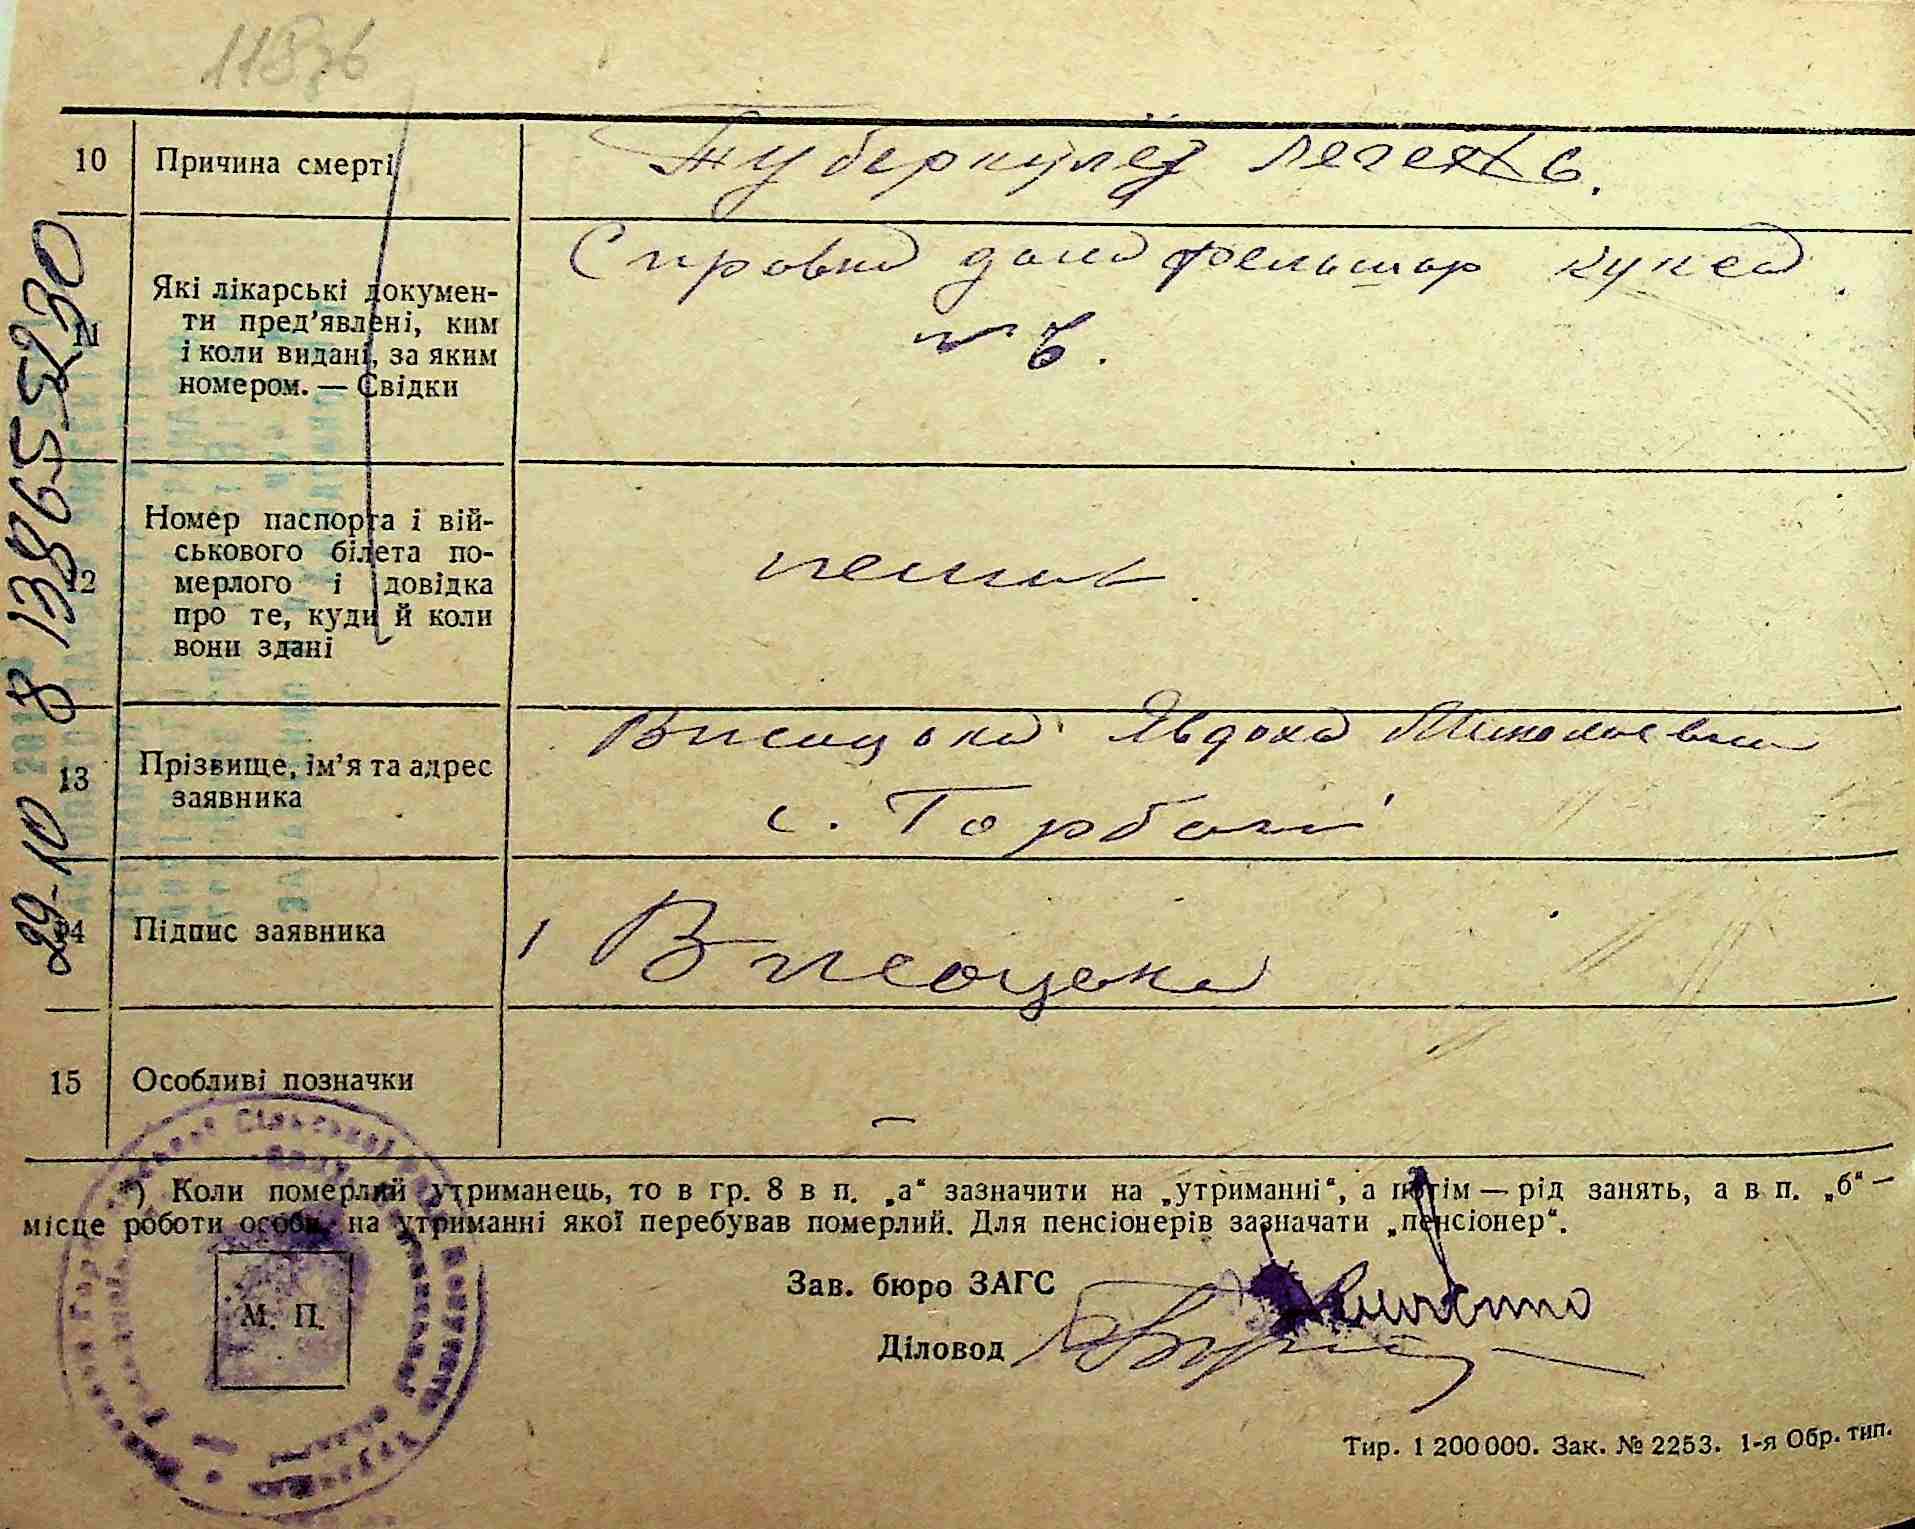 10 Причина смерті Туберкульз легень.
11 Які лікарські докумен-
ти пред’явлені, ким
і коли видані, за яким
номером. — Свідки
Справка дана фельшар кукса
№ 6.
12 Номер паспорта і вій-
ськового білета по-
мерлого і довідка
про те, куди й коли
вони здані
немає
13 Прізвище, ім’я та адрес
заявника
Висоцька Явдоха Миколаевна
с. Горбані
14 Підпис заявника Висоцька
15 Особливі позначки —
*) Коли померлий утриманець, то в гр. 8 в п. „а“ зазначити на „утриманні“, а потім — рід занять, а в п. „б“ —
місце роботи особи, на утриманні якої перебував померлий. Для пенсіонерів зазначати „пенсіонер“.
Зав. бюро ЗАГС
Діловод
М. П.
Тир. 1 200 000. Зак. № 2253. 1-я Обр. тип.
29-10 8 13865230